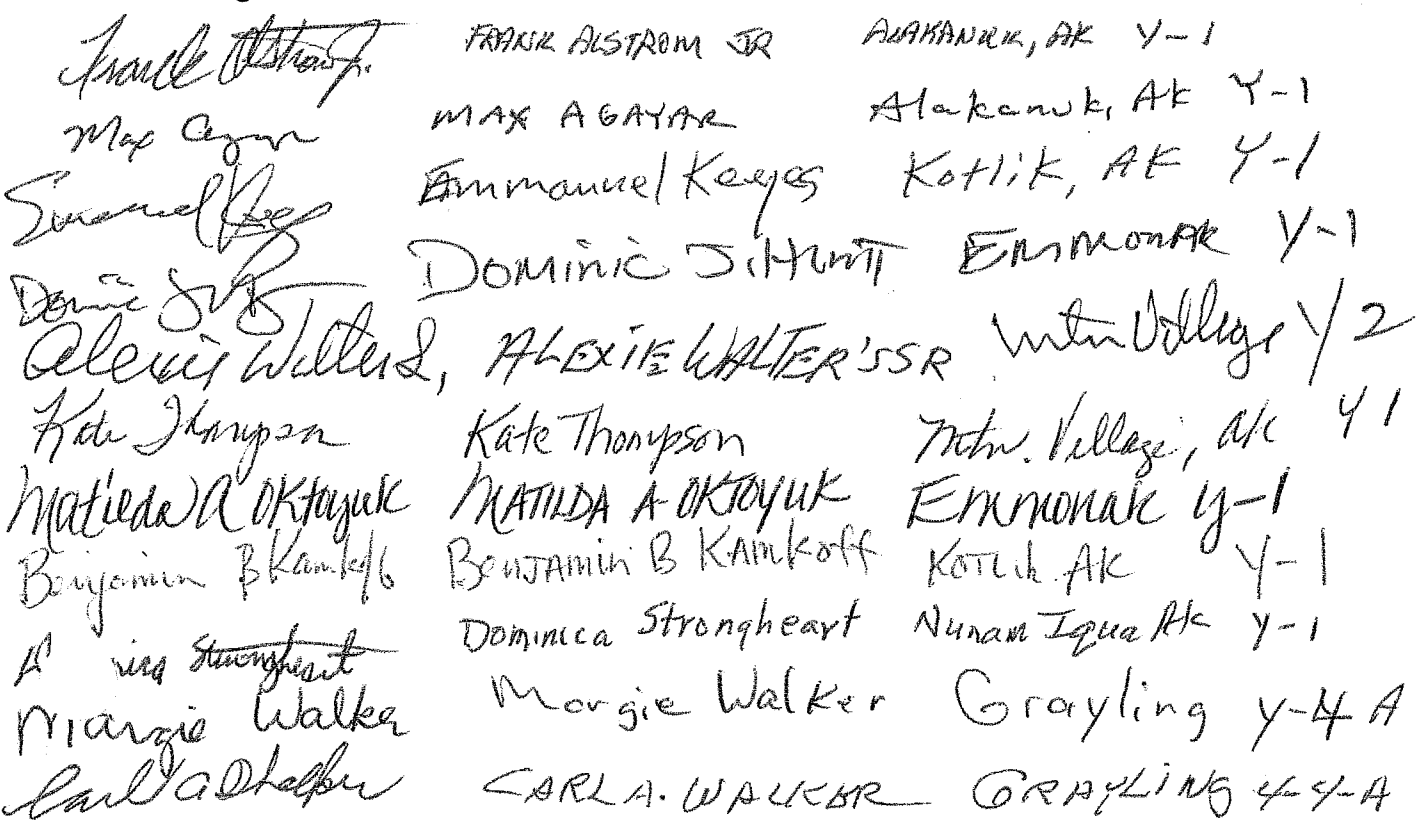 Frank Alstrom Jr. FRANK ALSTROM JR ALAKANUK, AK Y-1
Max MAX AGAYAR Alakanuk, AK Y-1
Emmanuel Keyes Kotlik, AK Y-1
DOMINIC J. HUNTT EMMONAK Y-1
Alexie Walters Sr, ALEXIE WALTER'S SR Mtn Village Y2
Kate Thompson Kate Thompson Mtn. Village, AK Y1
Matilda A OKtoyuk MATILDA A OKTOYUK Emmonak Y-1
Benjamin B Kamkoff BENJAMIN B KAMKOFF KOTLIK AK Y-1
Strongheart Dominica Strongheart Nunam Iqua AK Y-1
Margie Walker Margie Walker Grayling Y-4 A
Carl A CARL A. WALKER GRAYLING Y-4-A